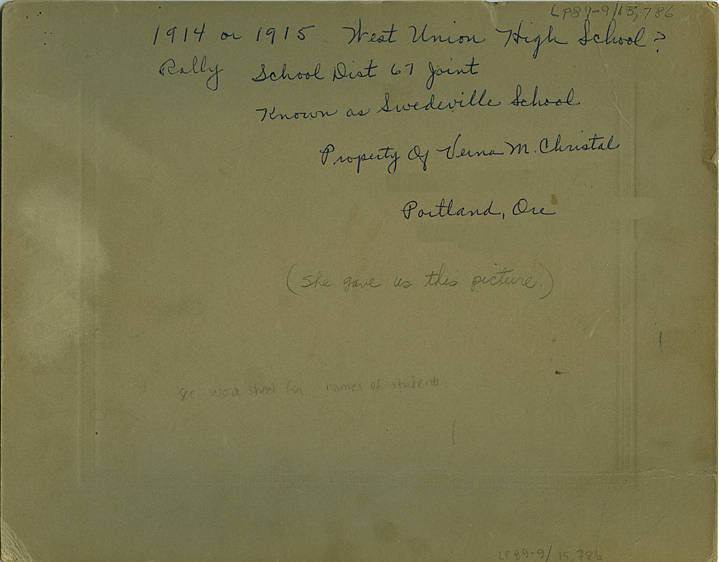 LP89-9/15,786
1914 or 1915 West Union High School?
Rally School Dist 67 Joint
Known as Swedeville School
Property Of Verna M. Christal
Portland, Ore
(She gave us this picture.)
see work sheet for names of students
LP89-9/15,786